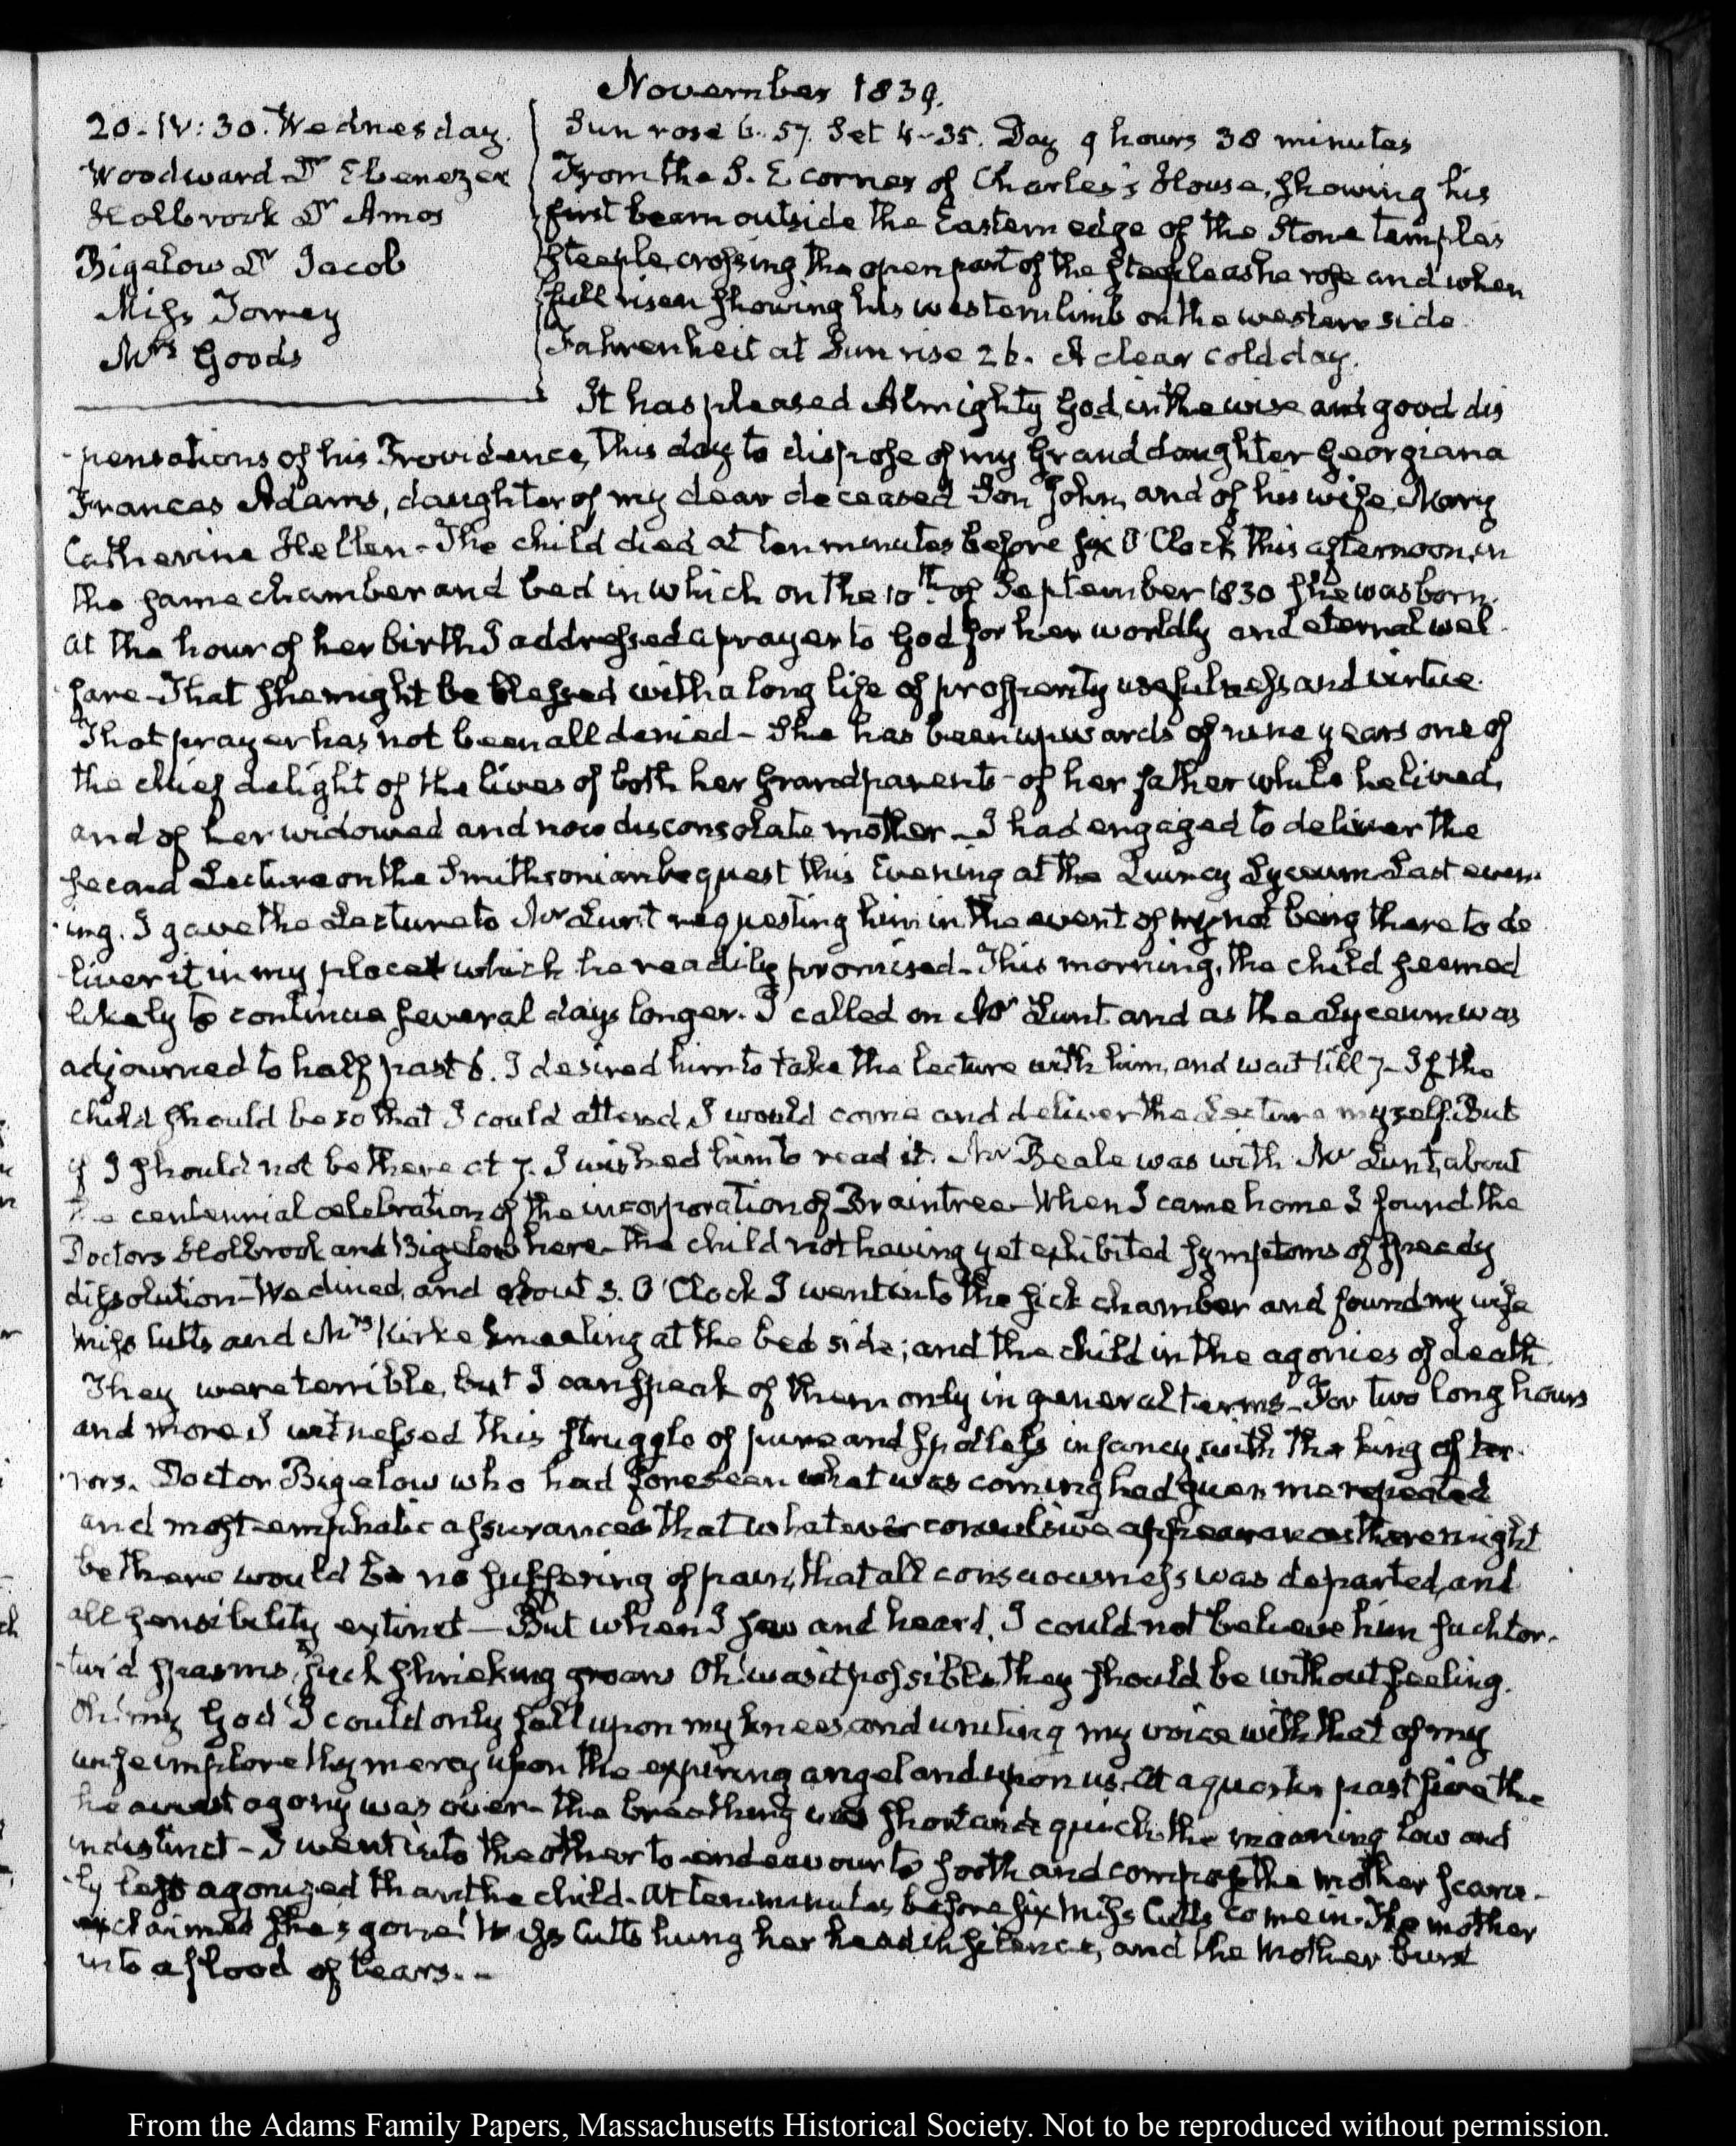 November 1839.
20. IV:30. Wednesday.
Woodward Dr Ebenezer
Holbrook Dr Amos
Bigelow Dr Jacob
Miss Torrey
Mrs Goods
Sun rose 6..57. Set 4-35. Day 9 hours 38 minutes
From the S. E corner of Charles's House, showing his
first beam outside the Eastern edge of the Stone temples
steeple, crossing the open part of the steeple as he rose and when
full risen showing his western limb on the western side
Fahrenheit at Sun rise 26. A clear cold day.
It has pleased Almighty God, in the wise and good dis
-pensations of his Providence, this day to dispose of my Grand daughter Georgiana
Frances Adams, daughter of my dear deceased Son John, and of his wife Mary
Catherine Hellen - The child died at ten minutes before six O'Clock this afternoon, in
the same chamber and bed in which on the 10th of September 1830 she was born.
At the hour of her birth I addressed a prayer to God for her worldly and eternal wel
fare - That she might be blessed with a long life of prosperity usefulness and virtue.
That prayer has not been all denied - She has been upwards of nine years one of
the chief delight of the lives of both her Grandparents - of her father while he lived,
and of her widowed and now disconsolate mother - I had engaged to deliver the
second Lecture on the Smithsonian bequest this Evening at the Quincy Lyceum Last even-
-ing. I gave the Lecture to Mr Lunt requesting him in the event of my not being there to de
liver it in my place which he readily promised - This morning, the child seemed
likely to continue several days longer. I called on Mr Lunt and as the Lyceum was
adjourned to half past 6. I desired him to take the lecture with him, and wait till 7 - If the
child should be so that I could attend, I would come and deliver the Lecture myself. But
if I should not be there at 7. I wished him to read it. Mr Beale was with Mr Lunt, about
centennial celebration of the incorporation of Braintree - When I came home I found the
Doctors Holbrook and Bigelow here - the child not having yet exhibited symptoms of speedy
dissolution - We dined, and about 3. O'Clock I went into the sick chamber and found my wife
Miss Cutts and Mrs Kirke kneeling at the bed side; and the child in the agonies of death.
They were terrible, but I can speak of them only in general terms - For two long hours
and more I witnessed this struggle of pure and spotless infancy, with the king of ter-
-rors. Doctor Bigelow who had foreseen what was coming had given me repeated
and most emphatic assurances that whatever convulsive appearances there might
be there would be no suffering of pain, that all consciousness was departed, and
all sensibility extinct — But when I saw and heard, I could not believe him such tor-
-tur'd spasms, such shrieking groans Oh! was it possible they should be without feeling.
Oh! my God! I could only fall upon my knees, and uniting my voice with that of my
wife implore thy mercy upon the expiring angel and upon us. At a quarter past five the
heaviest agony was over - the breathing was short and quick, the moaning low and
indistinct - I went into the other to endeavour to sooth and compose the mother scarce-
-ly less agonized than the child - At ten minutes before six Miss Cutts came in. The mother
exclaimed she's gone! Miss Cutts hung her head in silence, and the Mother burst
into a flood of tears. -
From the Adams Family Papers, Massachusetts Historical Society. Not to be reproduced without permission.